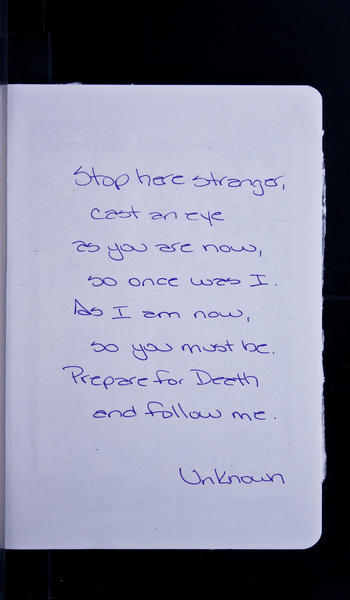 Stop here stranger,
cast an eye
as you are now,
so once was I.
As I am now,
so you must be.
Prepare for Death
and follow me.
Unknown